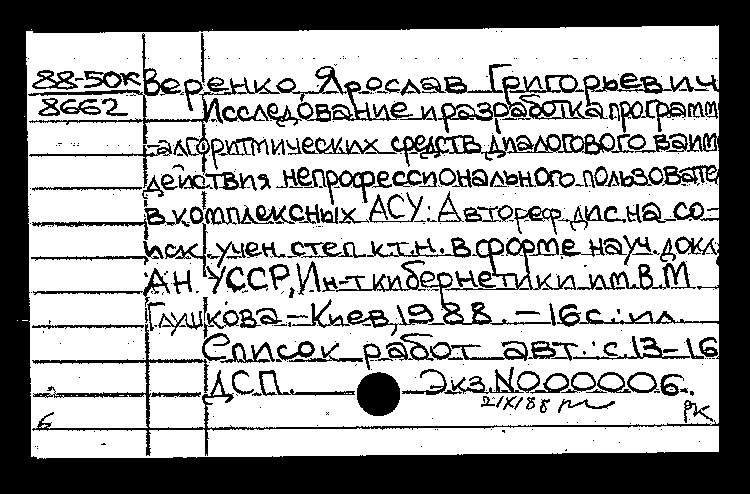 88-50К Веренко, Ярослав Григорьевич
8662 Исследование и разработка програмm
-алгоритмических средств диалогового ваим
действия непрофессионального пользовате
в комплексных АСУ: Автореф. дис. на со-
иск. учен. степ к.т.н. в форме науч. докл.
АН УССР, Ин-т кибернетики им. В.М
Глушкова.-Киев, 1988.-16 с.: ил.
Список работ авт.: с.13-16
ДСП. Экз. N000006.
21/X/88
РК
6